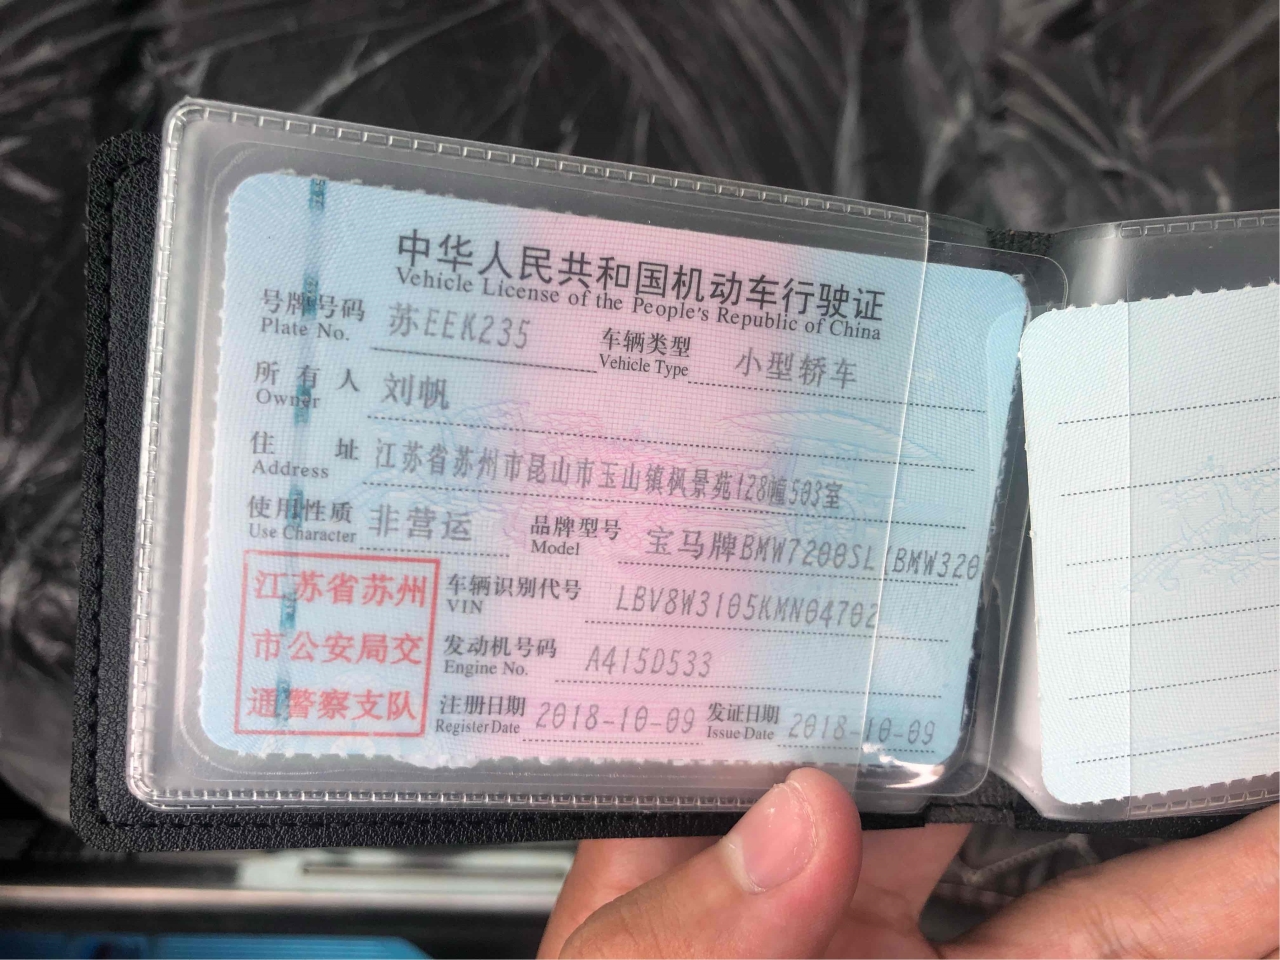 中华人民共和国机动车行驶证
Vehicle License of the People's Republic of China
号牌号码 苏EEK235 车辆类型 小型轿车
Plate No. Vehicle Type
所有人 刘帆
Owner
住址 江苏省苏州市昆山市玉山镇枫景苑128幢503室
Address
使用性质 非营运 品牌型号 宝马牌BMW7200SL(BMW320
Use Character Model
江苏省苏州
市公安局交
通警察支队
车辆识别代号 LBV8W3105KMN04702
VIN
发动机号码 A415D533
Engine No.
注册日期 2018-10-09 发证日期 2018-10-09
Register Date Issue Date